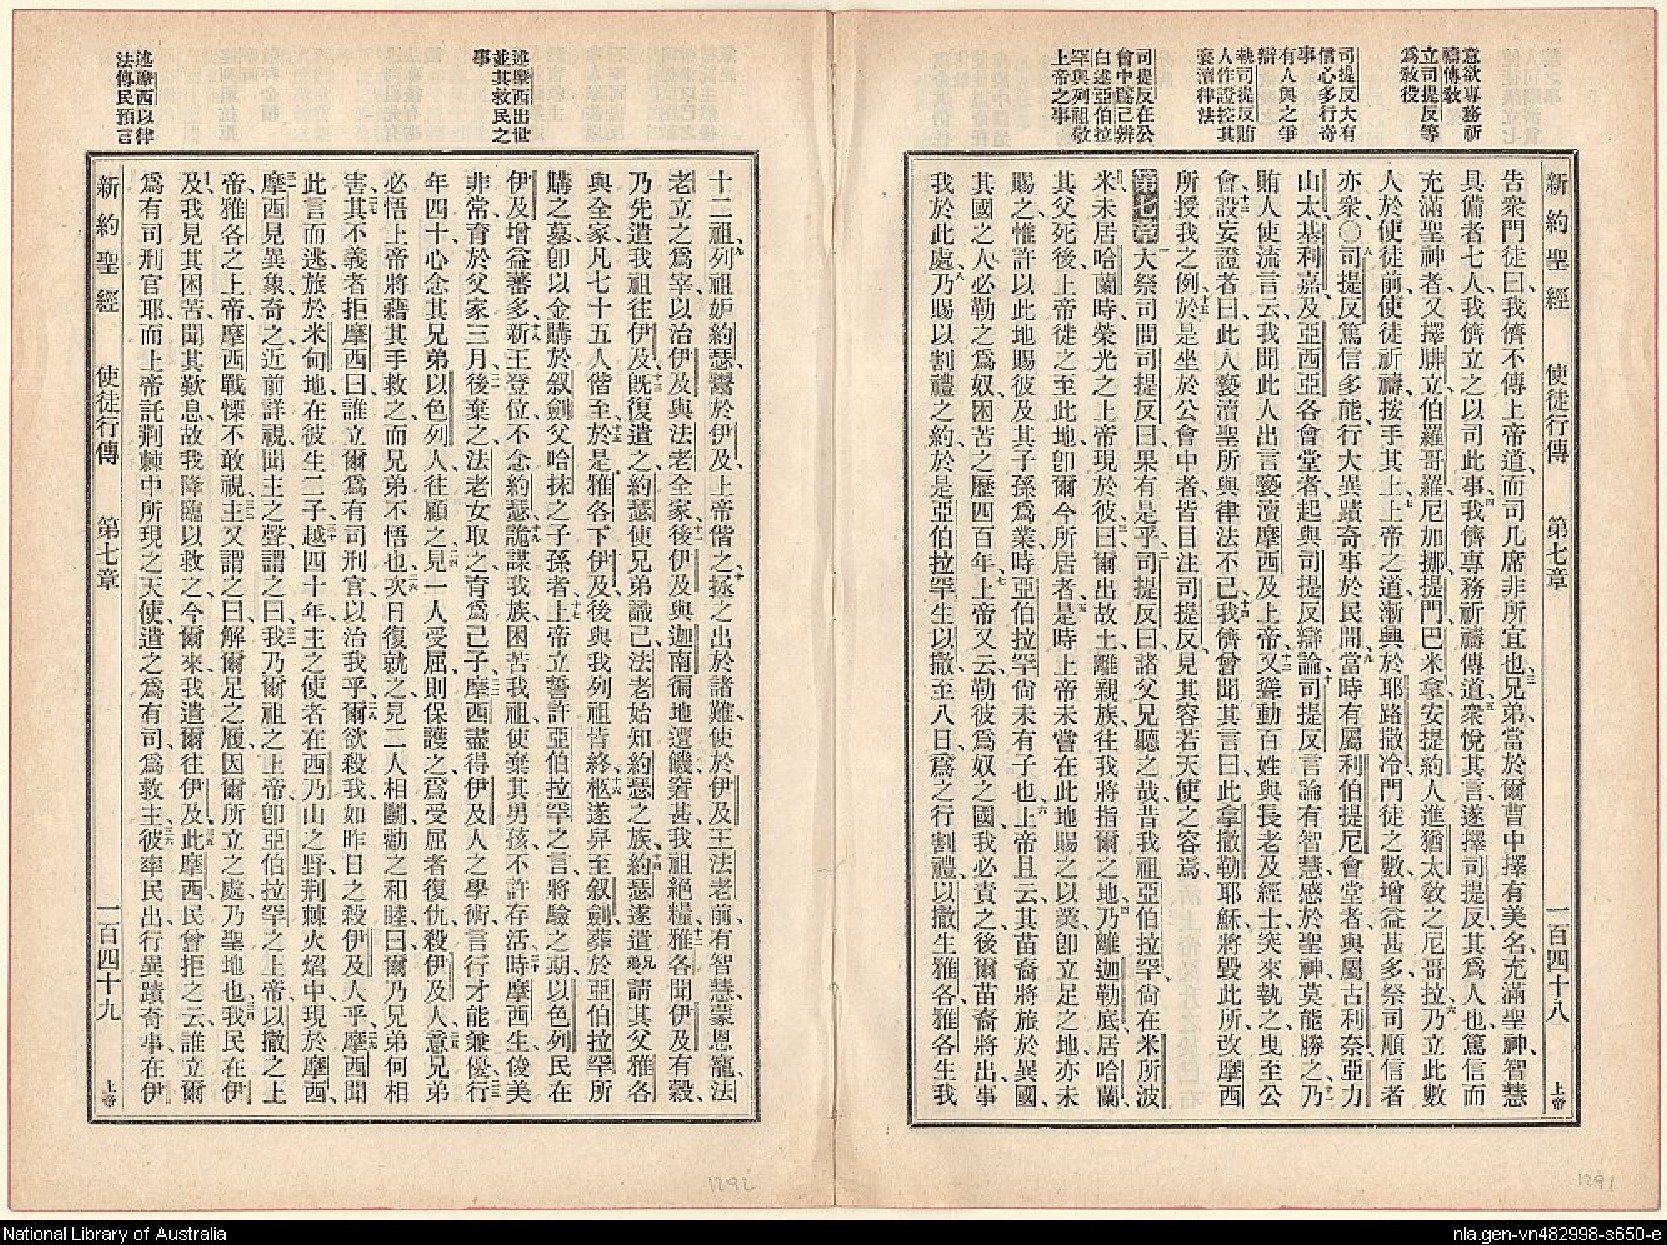 新約聖經 使徒行傳 第七章 一百四十八 上帝
意欲專務祈
禱傳教
立司提反等
爲教役
司提反大有
信心多行奇
事
有人與之爭
辯
執司提反賄
人作證控其
褻瀆律法
司提反在公
會中爲己辨
白述亞伯拉
罕與列祖敬
上帝之事
告衆門徒曰、我儕不傳上帝道、而司几席、非所宜也、三兄弟、當於爾曹中擇有美名、充滿聖神、智慧
具備者七人、我儕立之以司此事、四我儕專務祈禱傳道、五衆悅其言、遂擇司提反、其爲人也、篤信而
充滿聖神者、又擇腓立、伯羅哥羅、尼加挪、提門、巴米拿、安提約人進猶太教之尼哥拉、六乃立此數
人於使徒前、使徒祈禱、按手其上、七上帝之道漸興、於耶路撒冷門徒之數、增益甚多、祭司順信者
亦衆、〇八司提反篤信多能、行大異蹟奇事於民間、九當時有屬利伯提尼會堂者、與屬古利奈、亞力
山太、基利嘉、及亞西亞各會堂者、起與司提反辯論、十司提反言論有智慧、感於聖神、莫能勝之、十一乃
賄人使流言云、我聞此人出言褻瀆摩西及上帝、十二又聳動百姓與長老及經士、突來執之、曳至公
會、十三設妄證者曰、此人褻瀆聖所與律法不已、十四我儕曾聞其言曰、此拿撒勒耶穌、將毀此所、改摩西
所授我之例、十五於是坐於公會中者、皆目注司提反、見其容若天使之容焉、
第七章 一大祭司問司提反曰、果有是乎、二司提反曰、諸父兄聽之哉、昔我祖亞伯拉罕、尙在米所波
米、未居哈蘭時、榮光之上帝現於彼、三曰、爾出故土、離親族、往我將指爾之地、四乃離迦勒底、居哈蘭、
其父死後、上帝徙之至此地、卽爾今所居者、五是時上帝未嘗在此地賜之以業、卽立足之地、亦未
賜之、惟許以此地賜彼、及其子孫爲業、時亞伯拉罕尙未有子也、六上帝且云、其苗裔將旅於異國、
其國之人、必勒之爲奴、困苦之、歷四百年、七上帝又云、勒彼爲奴之國、我必責之、後爾苗裔將出、事
我於此處、八乃賜以割禮之約、於是亞伯拉罕生以撒、至八日、爲之行割禮、以撒生雅各、雅各生我
述摩西出世
並其救民之
事
述摩西以律
法傳民預言
十二祖、九列祖妒約瑟、鬻於伊及、上帝偕之、十拯之出於諸難、使於伊及王法老前、有智慧、蒙恩寵、法
老立之爲宰、以治伊及、與法老全家、十一後伊及與迦南徧地遭饑、窘甚、我祖絕糧、十二雅各聞伊及有穀、
乃先遣我祖往伊及、十三旣復遣之、約瑟使兄弟識己、法老始知約瑟之族、十四約瑟遂遣兄請其父雅各
與全家、凡七十五人偕至、十五於是雅各下伊及、後與我列祖皆終、十六柩遂舁至敘劍、葬於亞伯拉罕所
購之墓、卽以金購於敘劍父哈抹之子孫者、十七上帝立誓、許亞伯拉罕之言、將驗之期、以色列民在
伊及增益蕃多、十八新王登位、不念約瑟、十九詭謀我族、困苦我祖、使棄其男孩、不許存活、二十時摩西生、俊美
非常、育於父家三月、二一後棄之、法老女取之、育爲己子、二二摩西盡得伊及人之學術、言行才能兼優、二三行
年四十、心念其兄弟以色列人、往顧之、二四見一人受屈、則保護之、爲受屈者復仇、殺伊及人、二五意兄弟
必悟上帝將藉其手救之、而兄弟不悟也、二六次日復就之、見二人相鬬、勸之和睦、曰、爾乃兄弟、何相
害、二七其不義者拒摩西曰、誰立爾爲有司刑官、以治我乎、二八爾欲殺我、如昨日之殺伊及人乎、二九摩西聞
此言而逃、旅於米甸地、在彼生二子、三十越四十年、主之使者、在西乃山之野、荆棘火焰中、現於摩西、
三一摩西見異象、奇之、近前詳視、聞主之聲謂之曰、三二我乃爾祖之上帝、卽亞伯拉罕之上帝、以撒之上
帝、雅各之上帝、摩西戰慄不敢視、三三主又謂之曰、解爾足之履、因爾所立之處、乃聖地也、三四我民在伊
及、我見其困苦、聞其歎息、故我降臨以救之、今爾來、我遣爾往伊及、三五此摩西、民曾拒之云、誰立爾
爲有司刑官耶、而上帝託荆棘中所現之天使、遣之爲有司、爲救主、三六彼率民出、行異蹟奇事、在伊
新約聖經 使徒行傳 第七章 一百四十九 上帝
1292
1291
National Library of Australia
nla.gen-vn482998-s650-e